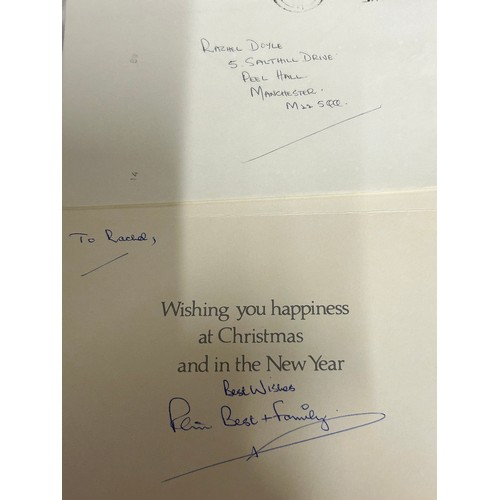 Rachel Doyle
5. Salthill Drive
Peel Hall
Manchester.
M22
To Rachel,
Wishing you happiness
at Christmas
and in the New Year
Best Wishes
Best + Family.